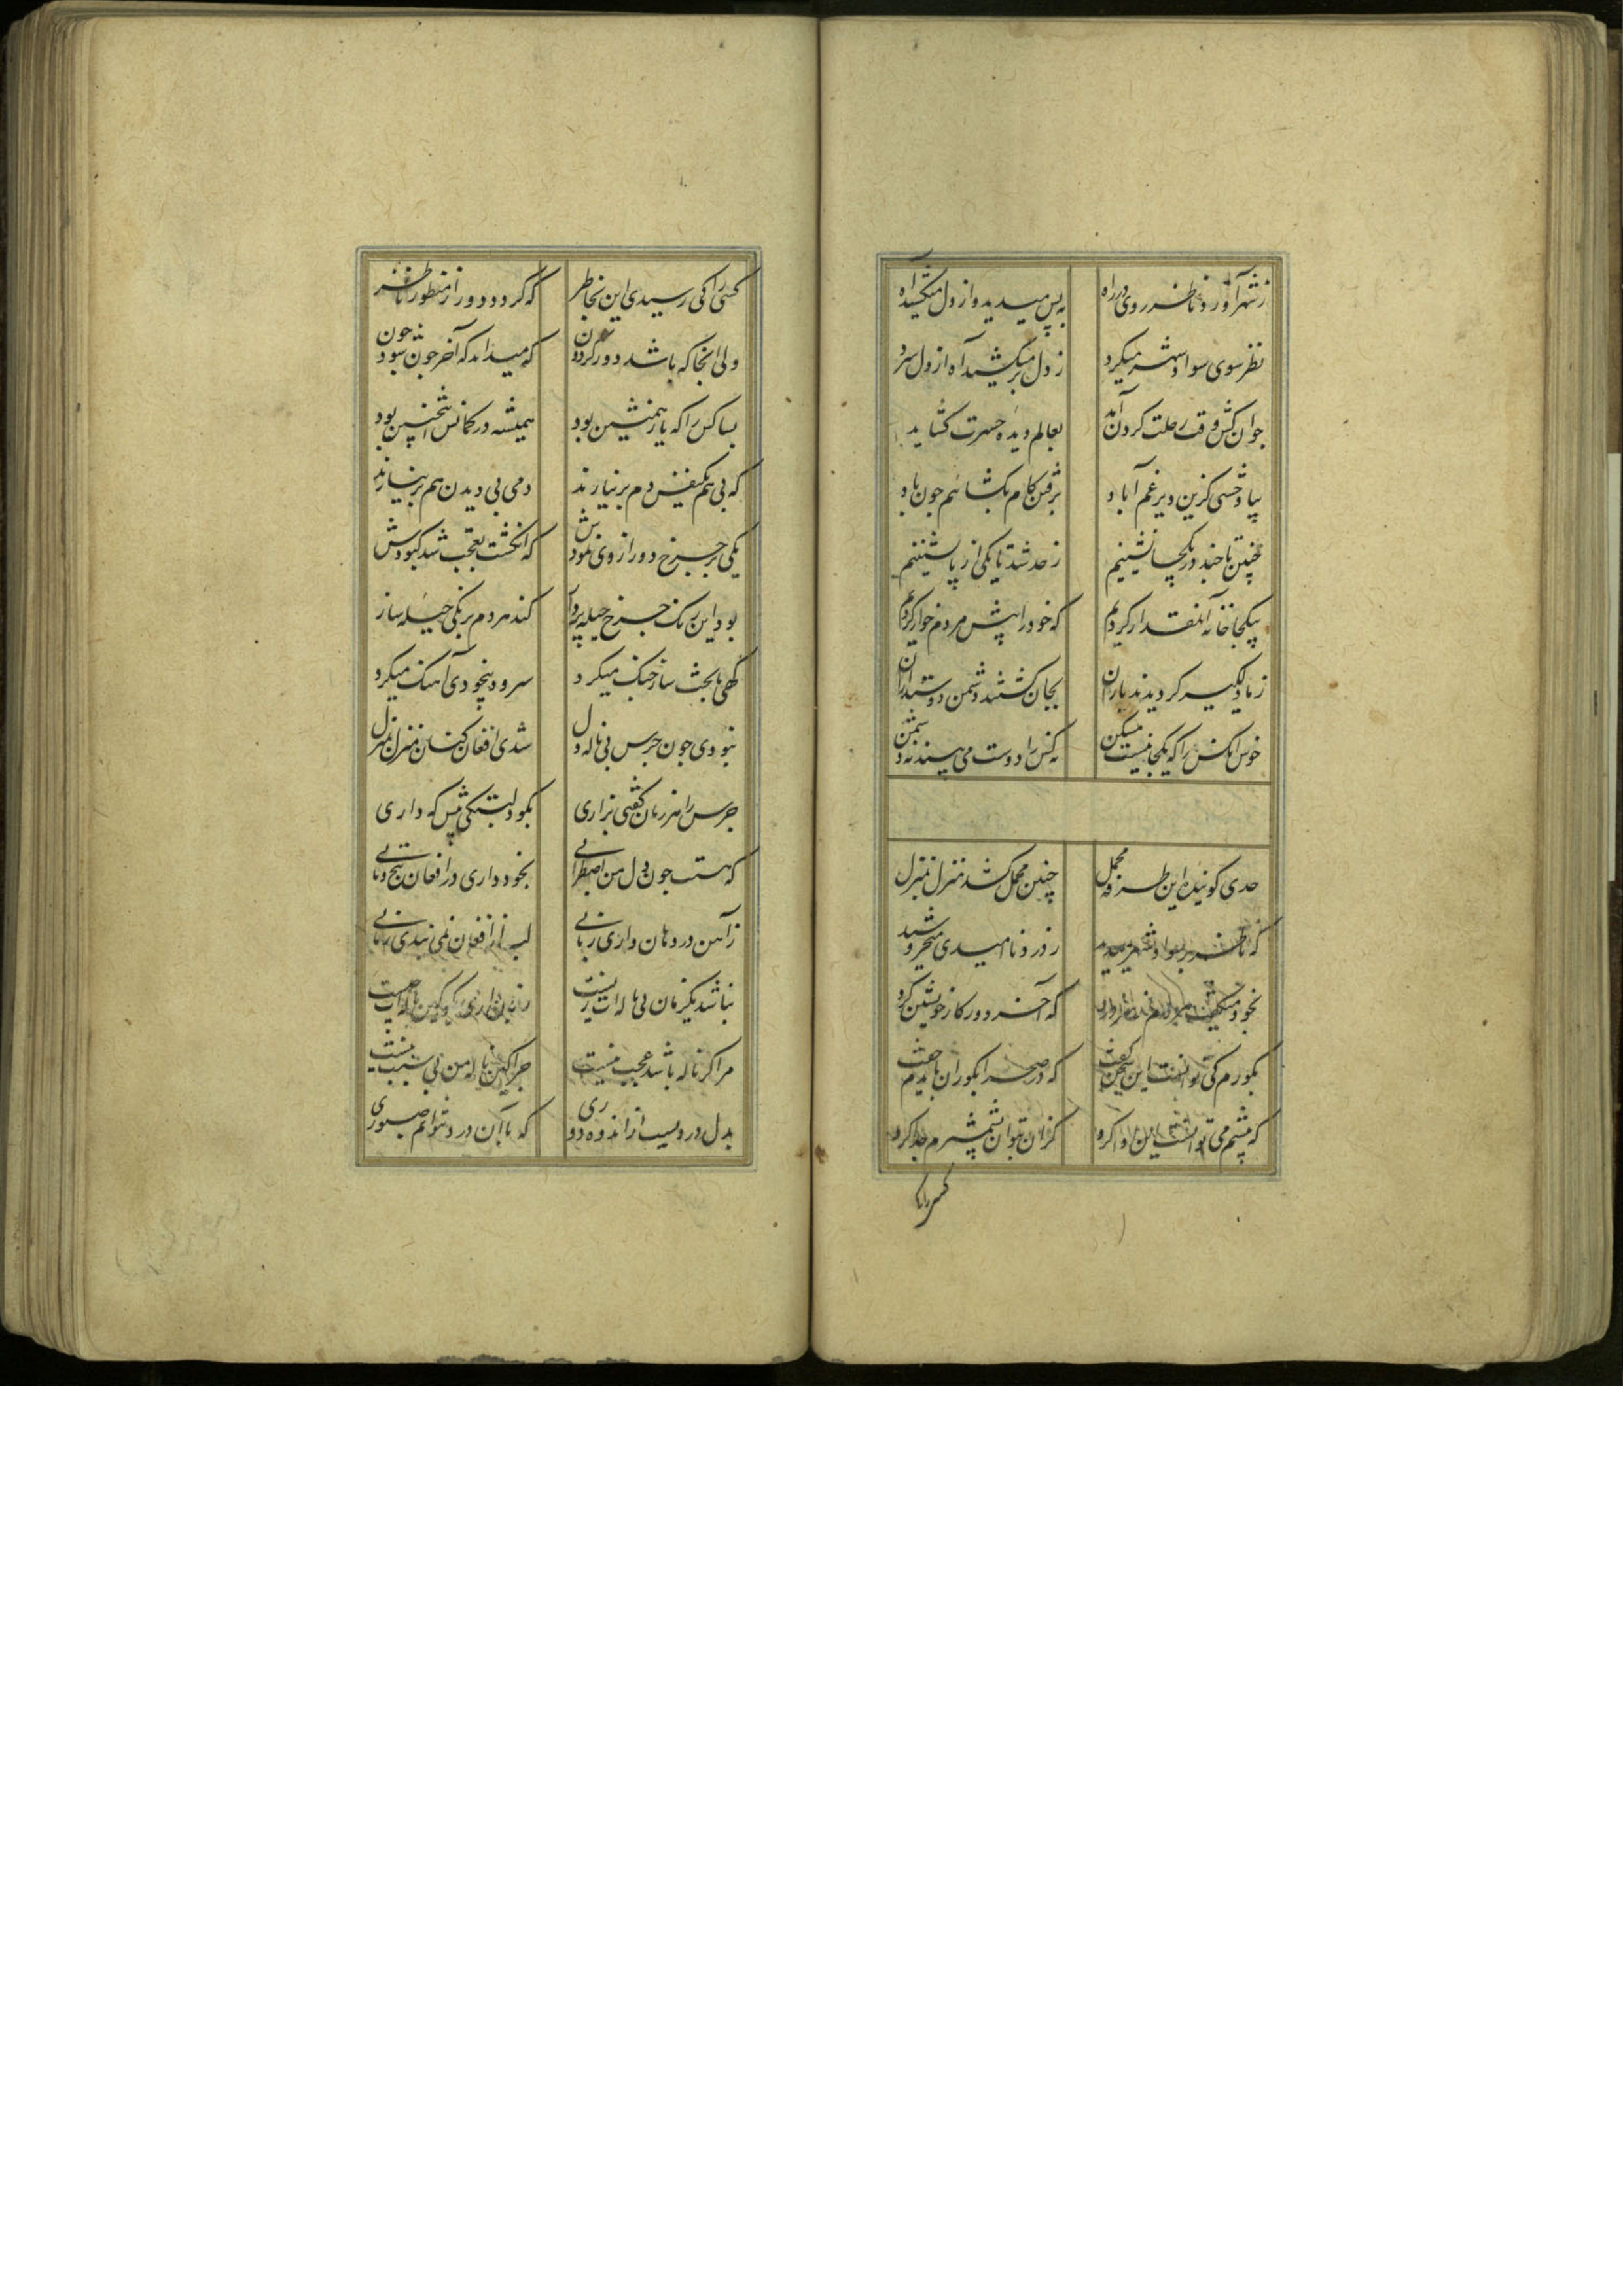 ز شهر آورد ناظر روی در راه
به پس میدید و از دل میکشید آه
نظر سوی سواد شهر میکرد
ز دل بر میکشید آه از دل سرد
جو آن کش وقت رحلت کردن آید
بعالم دیده حسرت کشاید
بیا وحشی کزین دیر غم آباد
برفتن کام بکشائیم جون باد
چنین تا جند در یکجا نشینیم
ز حد شد تا بکی از پا نشینیم
بیکجا خانه آنمقدار کردیم
که خود را پیش مردم خوار کردیم
ز ما دلکیر کردیدند یاران
بجان کشتند دشمن دوستداران
خوش آنکس را که یکجا نیست مسکن
نه کس را دوست می بیند نه دشمن
حدی کوینده این طرفه محمل
چنین محمل کشد منزل بمنزل
که ناظر بر سواد شهر میدید
ز درد ناامیدی میخروشید
بخود میکفت
که آخر دور کار خویشتن کرد
بکورم کی توانست این سخن کفت
که در صحرا بکوران باشدم جفت
که پیشم می توانست این ادا کرد
کز آن بتوان بشمشیرم جدا کرد
کسی را کی
کسی را کی رسیدی این بخاطر
که کردد دور از منظور ناظر
ولی آنجا که باشد دور کردون
که میداند که آخر جون شود جون
بسا کس را که یار همنشین بود
همیشه در کمانش اینچنین بود
که بی هم یکنفس دم بر نیارند
دمی بی دیدن هم بر نیارند
یکی بر جرخ دور از وی نمودش
که انکشت تعجب شد کبودش
بود این رنک جرخ حیله پرداز
کند هر دم برنکی حیله ساز
کهی با بخت ساز جنک میکرد
سرود بیخودی آهنک میکرد
نبودی جون جرس بی ناله دل
شدی افغان کنان منزل بمنزل
جرس را هر زمان کفتی بزاری
بکو دلبستکی پیش که داری
که هست جون دل من اضطرابی
بخود داری در افغان پیچ و تابی
ز آهن در دهان داری زبانی
لب از افغان نمی بندی زمانی
نباشد یکزمان بی ناله ات زیست
نهان داری بکو کین ناله از چیست
مرا کر ناله باشد عجب نیست
جرا کین ناله من بی سبب نیست
بدل دردیست از اندوه دوری
که با آن درد نتوانم صبوری